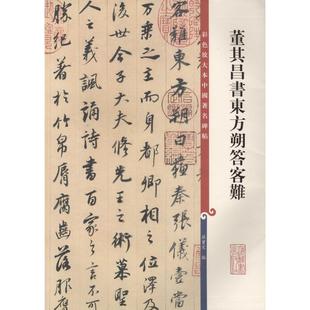 董其昌書東方朔答客難
彩色放大本中國著名碑帖
孫寶文 編
客難東方朔曰蘇秦張儀壹當
萬乘之主而都卿相之位澤及
後世今子大夫修先王之術慕聖
人之義諷誦詩書百家之言不可
勝紀著於竹帛脣腐齒落服膺